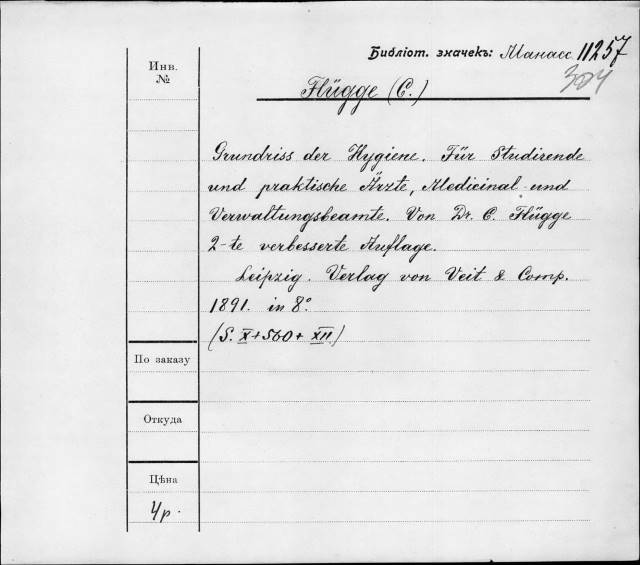 Библіот. значекъ: Манасс. 11257
304
Инв.
№
Flügge (C.)
Grundriss der Hygiene. Für Studirende
und praktische Ärzte, Medicinal- und
Verwaltungsbeamte. Von Dr. C. Flügge
2-te verbesserte Auflage.
Leipzig. Verlag von Veit & Comp.
1891. in 8°.
(S. X + 560 + XII)
По заказу
Откуда
Цѣна
4 р.